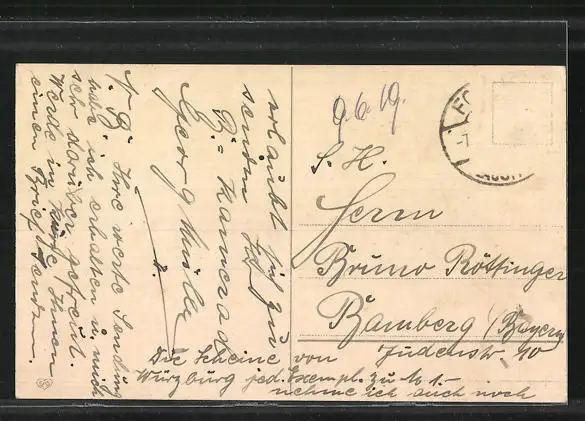 erlaubt sich zu
senden Ihr
B. = Kamerad
Georg Müller
N. B. Ihre werte Sendung
habe ich erhalten u. mich
sehr darüber gefreut.
Werde in Kürze Ihnen
einen Brief senden.
9.6.19.
S. H.
Herrn
Bruno Röttinger
Bamberg (Bayern)
Judenstr. 40
Die Scheine von
Würzburg jed. Exempl. zu M 1.-
nehme ich auch noch